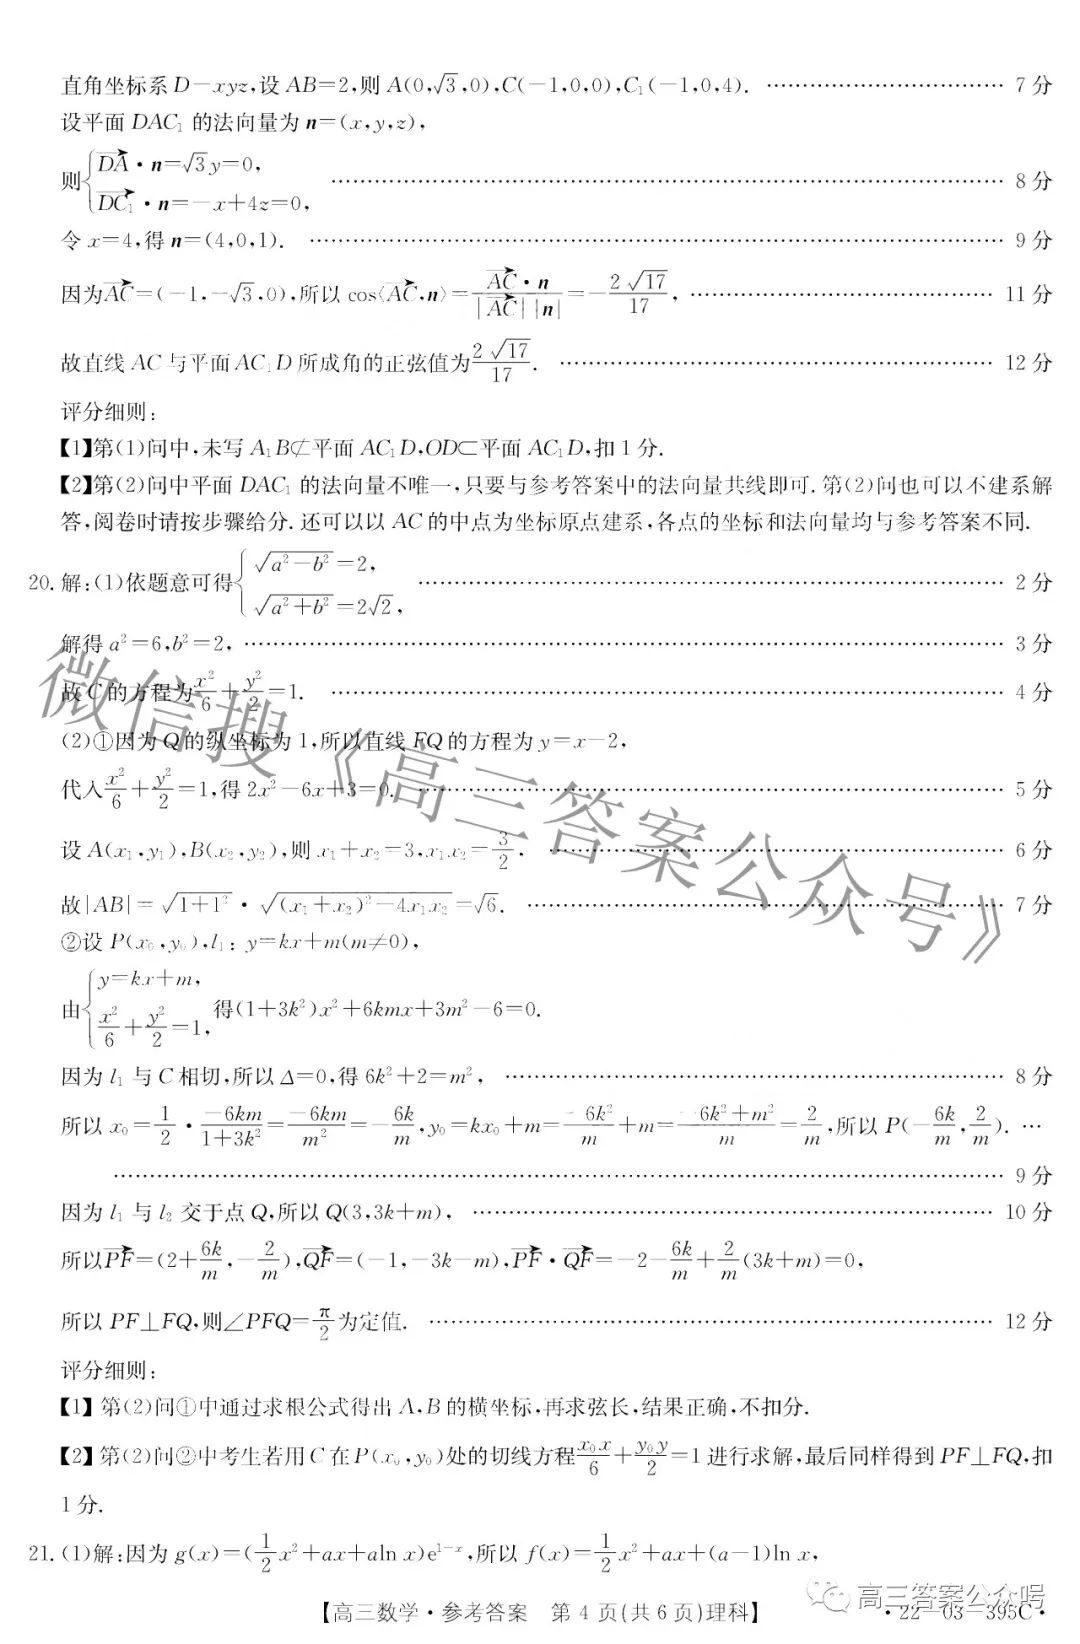 直角坐标系 D-xyz,设 AB=2,则 A(0,√3,0),C(-1,0,0),C₁(-1,0,4). …… 7 分
设平面 DAC₁ 的法向量为 n=(x,y,z),
则{DA·n=√3y=0, DC₁·n=-x+4z=0, …… 8 分
令 x=4,得 n=(4,0,1). …… 9 分
因为AC=(-1,-√3,0),所以 cos⟨AC,n⟩=AC·n/(|AC||n|)=-2√17/17, …… 11 分
故直线 AC 与平面 AC₁D 所成角的正弦值为2√17/17. …… 12 分
评分细则:
【1】第(1)问中,未写 A₁B⊄平面 AC₁D,OD⊂平面 AC₁D,扣 1 分.
【2】第(2)问中平面 DAC₁ 的法向量不唯一,只要与参考答案中的法向量共线即可.第(2)问也可以不建系解
答,阅卷时请按步骤给分.还可以以 AC 的中点为坐标原点建系,各点的坐标和法向量均与参考答案不同.
20. 解:(1)依题意可得{√(a²-b²)=2, √(a²+b²)=2√2, …… 2 分
解得 a²=6,b²=2, …… 3 分
故 C 的方程为x²/6+y²/2=1. …… 4 分
(2)①因为 Q 的纵坐标为 1,所以直线 FQ 的方程为 y=x-2,
代入x²/6+y²/2=1,得 2x²-6x+3=0. …… 5 分
设 A(x₁,y₁),B(x₂,y₂),则 x₁+x₂=3,x₁x₂=3/2. …… 6 分
故|AB|=√(1+1²)·√((x₁+x₂)²-4x₁x₂)=√6. …… 7 分
②设 P(x₀,y₀),l₁: y=kx+m(m≠0),
由{y=kx+m, x²/6+y²/2=1, 得(1+3k²)x²+6kmx+3m²-6=0.
因为 l₁ 与 C 相切,所以 Δ=0,得 6k²+2=m², …… 8 分
所以 x₀=1/2·(-6km)/(1+3k²)=(-6km)/m²=-6k/m,y₀=kx₀+m=(-6k²)/m+m=(-6k²+m²)/m=2/m,所以 P(-6k/m,2/m). …
…… 9 分
因为 l₁ 与 l₂ 交于点 Q,所以 Q(3,3k+m), …… 10 分
所以PF=(2+6k/m,-2/m),QF=(-1,-3k-m),PF·QF=-2-6k/m+2/m(3k+m)=0,
所以 PF⊥FQ,则∠PFQ=π/2为定值. …… 12 分
评分细则:
【1】 第(2)问①中通过求根公式得出 A,B 的横坐标,再求弦长,结果正确,不扣分.
【2】 第(2)问②中考生若用 C 在 P(x₀,y₀)处的切线方程x₀x/6+y₀y/2=1 进行求解,最后同样得到 PF⊥FQ,扣
1 分.
21. (1)解:因为 g(x)=(1/2x²+ax+aln x)e¹⁻ˣ,所以 f(x)=1/2x²+ax+(a-1)ln x,
【高三数学·参考答案 第 4 页(共 6 页)理科】
·22-03-395C·
微信搜《高三答案公众号》
高三答案公众号